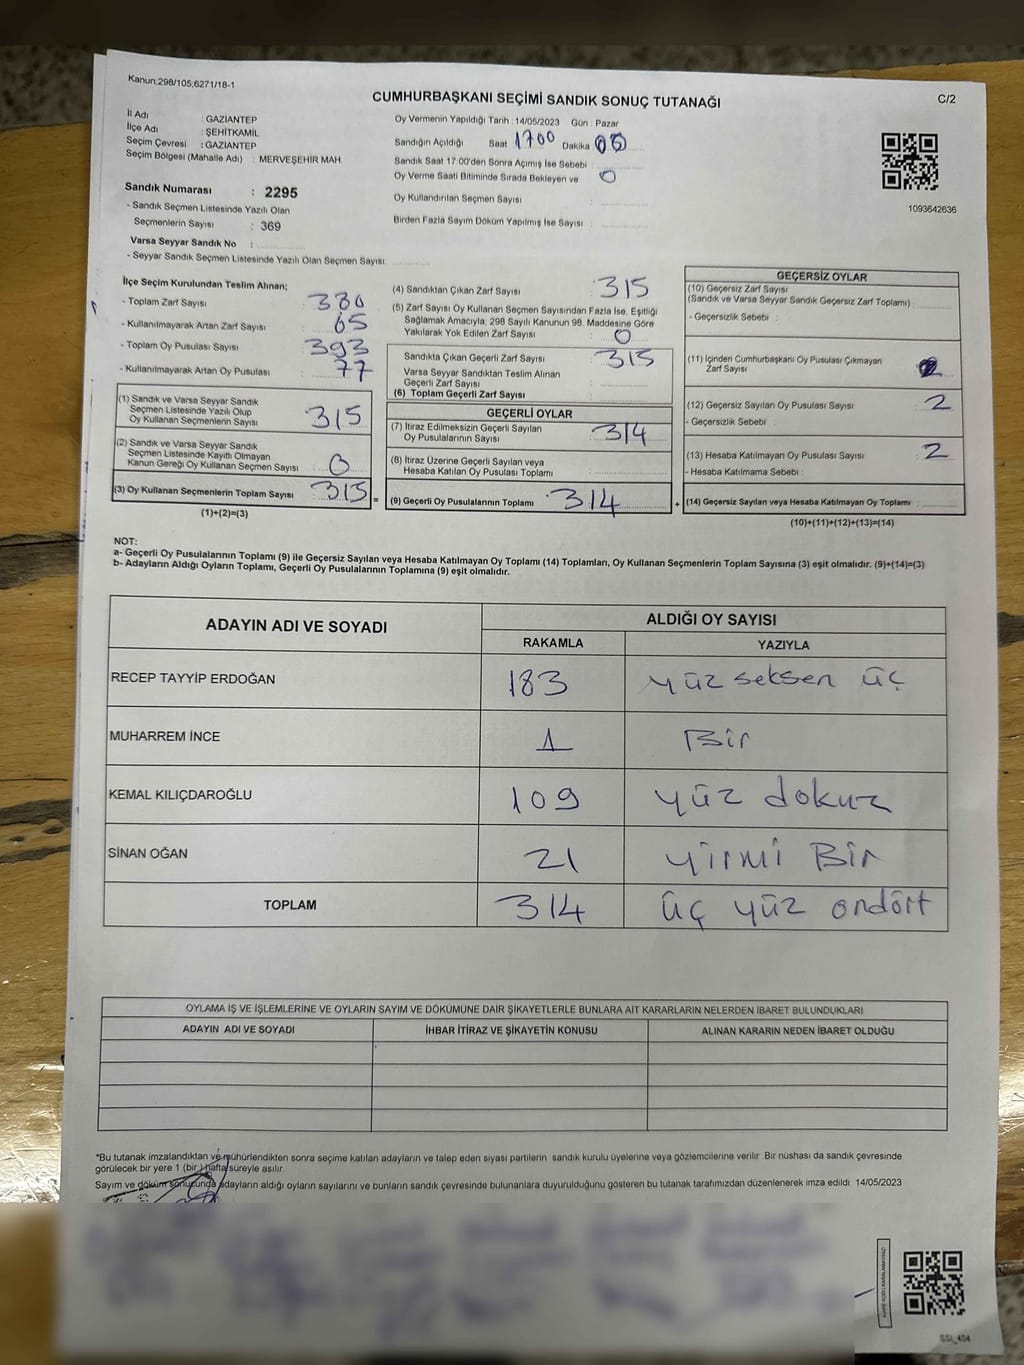 Kanun;298/105;6271/18-1
CUMHURBAŞKANI SEÇİMİ SANDIK SONUÇ TUTANAĞI
C/2
İl Adı : GAZİANTEP
İlçe Adı : ŞEHİTKAMİL
Seçim Çevresi : GAZİANTEP
Seçim Bölgesi (Mahalle Adı) : MERVEŞEHİR MAH.
Sandık Numarası : 2295
- Sandık Seçmen Listesinde Yazılı Olan
Seçmenlerin Sayısı : 369
Varsa Seyyar Sandık No :
- Seyyar Sandık Seçmen Listesinde Yazılı Olan Seçmen Sayısı:
Oy Vermenin Yapıldığı Tarih :14/05/2023 Gün : Pazar
Sandığın Açıldığı Saat 1700 Dakika 05
Sandık Saat 17:00'den Sonra Açımış İse Sebebi :
Oy Verme Saati Bitiminde Sırada Bekleyen ve 0
Oy Kullandırılan Seçmen Sayısı :
Birden Fazla Sayım Döküm Yapılmış İse Sayısı :
1093642636
İlçe Seçim Kurulundan Teslim Alınan;
- Toplam Zarf Sayısı : 380
- Kullanılmayarak Artan Zarf Sayısı : 65
- Toplam Oy Pusulası Sayısı : 393
- Kullanılmayarak Artan Oy Pusulası : 77
(1) Sandık ve Varsa Seyyar Sandık
Seçmen Listesinde Yazılı Olup
Oy Kullanan Seçmenlerin Sayısı : 315
(2) Sandık ve Varsa Seyyar Sandık
Seçmen Listesinde Kayıtlı Olmayan
Kanun Gereği Oy Kullanan Seçmen Sayısı : 0
(3) Oy Kullanan Seçmenlerin Toplam Sayısı : 315 =
(1)+(2)=(3)
(4) Sandıktan Çıkan Zarf Sayısı : 315
(5) Zarf Sayısı Oy Kullanan Seçmen Sayısından Fazla İse, Eşitliği
Sağlamak Amacıyla; 298 Sayılı Kanunun 98. Maddesine Göre
Yakılarak Yok Edilen Zarf Sayısı : 0
Sandıkta Çıkan Geçerli Zarf Sayısı : 315
Varsa Seyyar Sandıktan Teslim Alınan
Geçerli Zarf Sayısı :
(6) Toplam Geçerli Zarf Sayısı :
GEÇERLİ OYLAR
(7) İtiraz Edilmeksizin Geçerli Sayılan
Oy Pusulalarının Sayısı : 314
(8) İtiraz Üzerine Geçerli Sayılan veya
Hesaba Katılan Oy Pusulası Toplamı :
(9) Geçerli Oy Pusulalarının Toplamı : 314 +
GEÇERSİZ OYLAR
(10) Geçersiz Zarf Sayısı
(Sandık ve Varsa Seyyar Sandık Geçersiz Zarf Toplamı) :
- Geçersizlik Sebebi :
(11) İçinden Cumhurbaşkanı Oy Pusulası Çıkmayan
Zarf Sayısı :
(12) Geçersiz Sayılan Oy Pusulası Sayısı : 2
- Geçersizlik Sebebi :
(13) Hesaba Katılmayan Oy Pusulası Sayısı : 2
- Hesaba Katılmama Sebebi :
(14) Geçersiz Sayılan veya Hesaba Katılmayan Oy Toplamı :
(10)+(11)+(12)+(13)=(14)
NOT:
a- Geçerli Oy Pusulalarının Toplamı (9) ile Geçersiz Sayılan veya Hesaba Katılmayan Oy Toplamı (14) Toplamları, Oy Kullanan Seçmenlerin Toplam Sayısına (3) eşit olmalıdır. (9)+(14)=(3)
b- Adayların Aldığı Oyların Toplamı, Geçerli Oy Pusulalarının Toplamına (9) eşit olmalıdır.
ADAYIN ADI VE SOYADI
ALDIĞI OY SAYISI
RAKAMLA YAZIYLA
RECEP TAYYİP ERDOĞAN 183 yüz seksen üç
MUHARREM İNCE 1 Bir
KEMAL KILIÇDAROĞLU 109 yüz dokuz
SİNAN OĞAN 21 yirmi Bir
TOPLAM 314 üç yüz ondört
OYLAMA İŞ VE İŞLEMLERİNE VE OYLARIN SAYIM VE DÖKÜMÜNE DAİR ŞİKAYETLERLE BUNLARA AİT KARARLARIN NELERDEN İBARET BULUNDUKLARI
ADAYIN ADI VE SOYADI İHBAR İTİRAZ VE ŞİKAYETİN KONUSU ALINAN KARARIN NEDEN İBARET OLDUĞU
*Bu tutanak imzalandıktan ve mühürlendikten sonra seçime katılan adayların ve talep eden siyasi partilerin sandık kurulu üyelerine veya gözlemcilerine verilir. Bir nüshası da sandık çevresinde
görülecek bir yere 1 (bir) hafta süreyle asılır.
Sayım ve döküm sonucunda adayların aldığı oyların sayılarını ve bunların sandık çevresinde bulunanlara duyurulduğunu gösteren bu tutanak tarafımızdan düzenlenerek imza edildi. 14/05/2023
KARE KODU KARALAMAYINIZ!
SSL_404